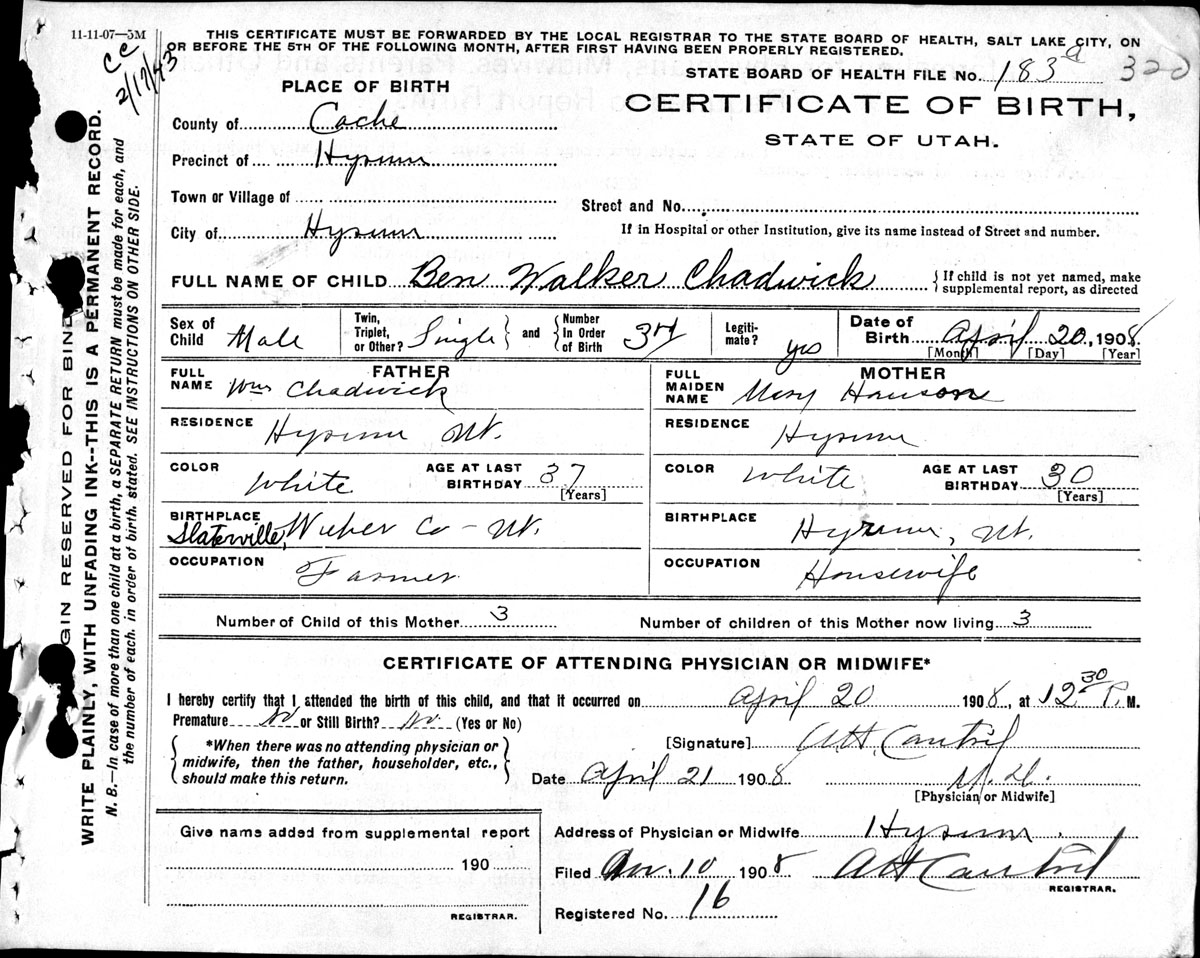 11-11-07—3M
THIS CERTIFICATE MUST BE FORWARDED BY THE LOCAL REGISTRAR TO THE STATE BOARD OF HEALTH, SALT LAKE CITY, ON
OR BEFORE THE 5TH OF THE FOLLOWING MONTH, AFTER FIRST HAVING BEEN PROPERLY REGISTERED.
CC
2/17/43
STATE BOARD OF HEALTH FILE No. 183 a 320
CERTIFICATE OF BIRTH,
STATE OF UTAH.
PLACE OF BIRTH
County of Cache
Precinct of Hyrum
Town or Village of
City of Hyrum
Street and No.
If in Hospital or other Institution, give its name instead of Street and number.
FULL NAME OF CHILD Ben Walker Chadwick { If child is not yet named, make
supplemental report, as directed
Sex of Child Male
Twin, Triplet, or Other? Single } and { Number In Order of Birth 3rd
Legiti-mate? yes
Date of Birth April 20, 1908
[Month] [Day] [Year]
FATHER
FULL NAME Wm Chadwick
RESIDENCE Hyrum Ut.
COLOR White AGE AT LAST BIRTHDAY 37
[Years]
BIRTHPLACE Slaterville, Weber Co - Ut.
OCCUPATION Farmer
MOTHER
FULL MAIDEN NAME Mary Hanson
RESIDENCE Hyrum
COLOR White AGE AT LAST BIRTHDAY 30
[Years]
BIRTHPLACE Hyrum, Ut.
OCCUPATION Housewife
Number of Child of this Mother 3 Number of children of this Mother now living 3
CERTIFICATE OF ATTENDING PHYSICIAN OR MIDWIFE*
I hereby certify that I attended the birth of this child, and that it occurred on April 20 1908, at 12 30 P. M.
Premature No or Still Birth? No. (Yes or No)
{ *When there was no attending physician or
midwife, then the father, householder, etc.,
should make this return. }
[Signature] A H. Cantril
Date April 21 1908 M.D.
[Physician or Midwife]
Give name added from supplemental report
190
REGISTRAR.
Address of Physician or Midwife Hyrum.
Filed 10 1908 A H Cantril
REGISTRAR.
Registered No. 16
GIN RESERVED FOR BIND
WRITE PLAINLY, WITH UNFADING INK--THIS IS A PERMANENT RECORD.
N. B.—In case of more than one child at a birth, a SEPARATE RETURN must be made for each, and
the number of each, in order of birth, stated. SEE INSTRUCTIONS ON OTHER SIDE.